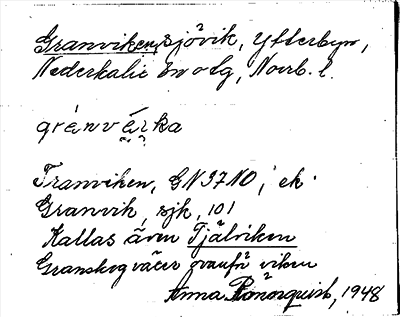 Granviken, sjövik, Ytterbyn,
Nederkalix snvfg, Norrb. l.
gránvē̬r̬ka
Tranviken, GN37NO, ek.
Granvik, sjk, 101
Kallas även Tjälviken
Granskog växer ovanför viken
Anna Rönnquist, 1948